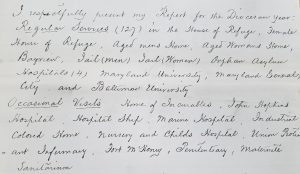 I respectfully present my Report for the Diocesan Year.
Regular Services (127) in the House of Refuge, Female
House of Refuge, Aged Mens Home, Aged Womans Home,
Bayview, Jail (Men) Jail (Women) Orphan Asylum
Hospitals (4) Maryland University, Maryland General,
City and Baltimore University
Occasional Visits Home of Incurables, John Hopkins
Hospital, Hospital Ship, Marine Hospital, Industrial
Colored Home, Nursery and Childs Hospital, Union Protest
ant Infirmary, Fort McHenry, Penitentiary, Maternite
Sanitarium